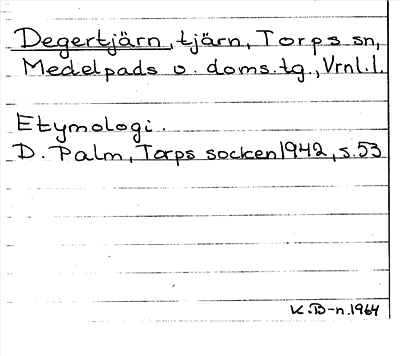 Degertjärn, tjärn, Torps sn,
Medelpads v. doms.tg., Vrnl.l.
Etymologi.
D. Palm, Torps socken 1942, s.53
K.B-n.1964